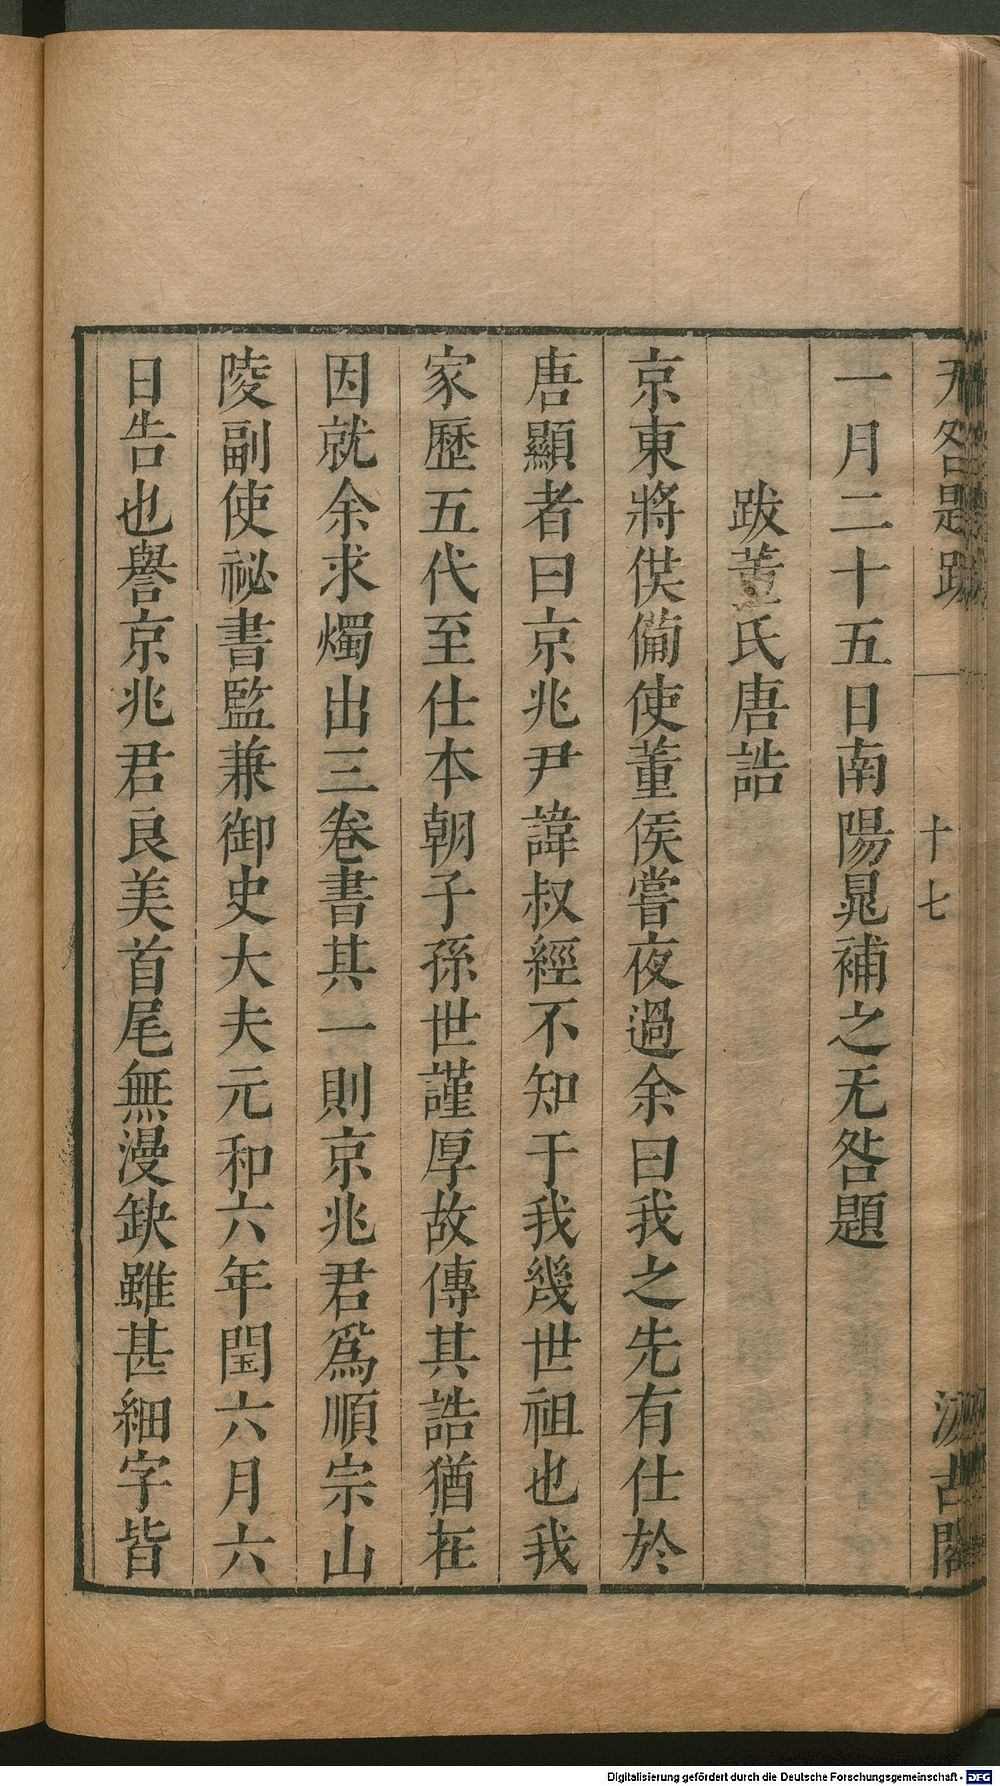 无咎題跋
十七
汲古閣
一月二十五日南陽晁補之无咎題
跋董氏唐誥
京東將供備使董侯嘗夜過余曰我之先有仕於
唐顯者曰京兆尹諱叔經不知于我幾世祖也我
家歷五代至仕本朝子孫世謹厚故傳其誥猶在
因就余求燭出三卷書其一則京兆君爲順宗山
陵副使祕書監兼御史大夫元和六年閏六月六
日告也譽京兆君良美首尾無漫缺雖甚細字皆
Digitalisierung gefördert durch die Deutsche Forschungsgemeinschaft - DFG